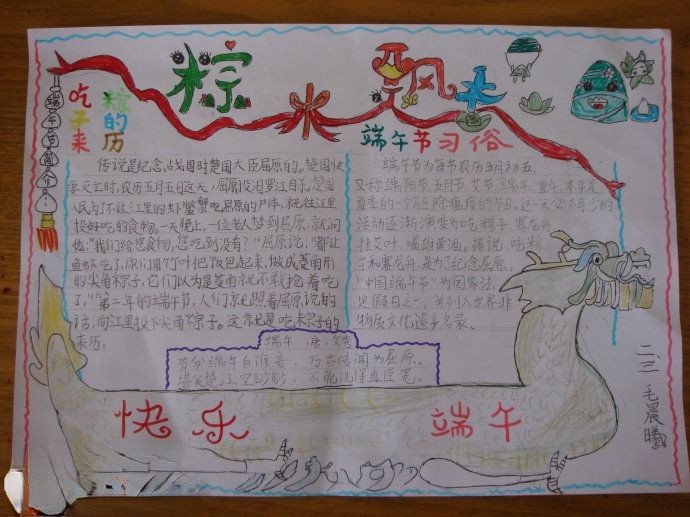 粽水飘香
端午节简介
吃粽
子的
来历
传说是纪念战国时楚国大臣屈原的。楚国快
要灭亡时,农历五月五日这天,屈原投汨罗江自杀,楚国
人民为了不让江里的虾蟹鳖吃屈原的尸体,就往江里
投好吃的食物。一天晚上,一位老人梦到屈原,就问
他:“我们给您食物,您吃到没有?”屈原说,“都让
鱼虾吃了,你们用竹叶把饭包起来,做成菱角形
的尖角粽子,它们以为是菱角就不敢抢着吃
了,”第二年的端午节,人们就照着屈原说的
话,向江里投下尖角粽子。这就是吃粽子的
来历。
端午节习俗
端午节为每节农历五月初五,
又称端阳节,五月节,艾节,端午,重午,本来是
夏季的一个驱除瘟疫的节日。这一天必不可少的
活动逐渐演变为吃粽子,赛龙舟,
挂艾叶,喝雄黄油。据说,吃粽
子和赛龙舟,是为了纪念屈原。
“中国端午节”为国家法
定假日之一,并列入世界非
物质文化遗产名录。
端午 唐:文秀
节分端午自谁言,万古传闻为屈原。
堪笑楚江空渺渺,不能洗得直臣冤。
快乐 端午
二、三 毛晨曦